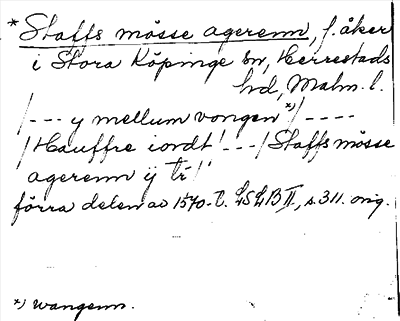 * Staffs mösse agerenn, f. åker
i Stora Köpinge sn, Herrestads
hd, Malm. l.
/--- y mellum vongen *)/ ----
/Hauffre iordt! ---/ Staffs mösse
agerenn ÿ tr!
förra delen av 1570-t. LSLB II, s. 311. orig.
*) wangenn.